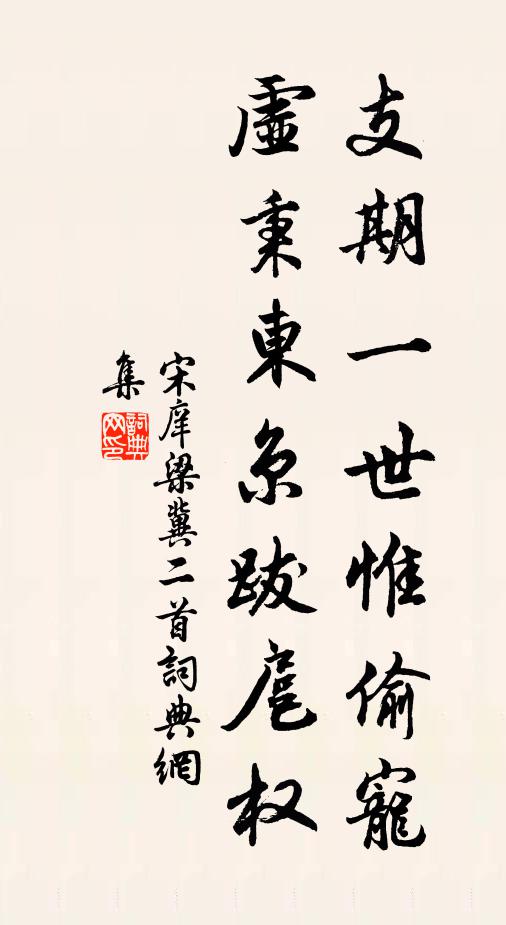 支期一世惟偷寵
虛秉東京跋扈权
宋庠梁冀二首詞典網
集
詞典网印